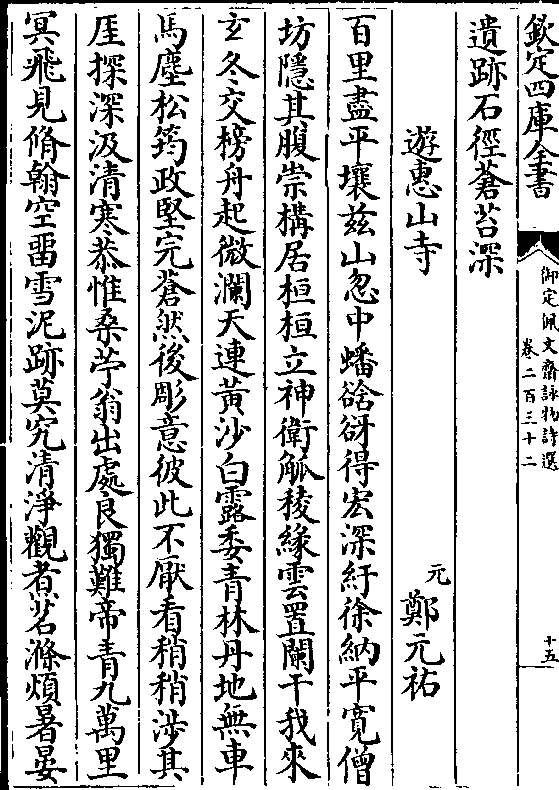 欽定四庫全書
御定佩文齋詠物詩選
卷二百三十二
十五
遺跡石徑蒼苔深
遊惠山寺
元鄭元祐
百里盡平壤兹山忽中蟠谽谺得宏深紆徐納平寛僧
坊隱其腹崇構居桓桓立神衛觚稜緣雲置闌干我來
玄冬交榜舟起微瀾天連黄沙白露委青林丹地無車
馬塵松筠政堅完蒼然後彫意彼此不厭看稍稍涉其
厓探深汲清寒恭惟桑苧翁出處良獨難帝青九萬里
冥飛見脩翰空畱雪泥跡莫究清淨觀煮茗滌煩暑晏